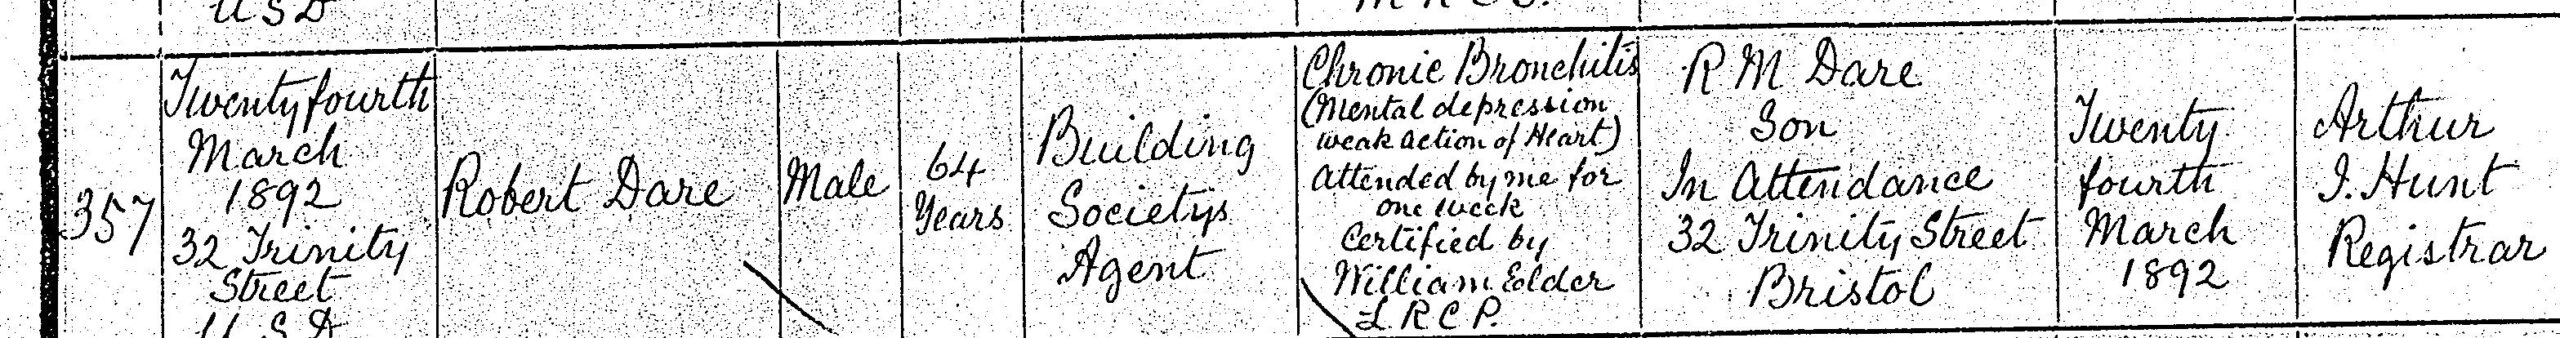 U S D
357
Twenty fourth
March
1892
32 Trinity
Street
U. S. D
Robert Dare
Male
64
Years
Building
Societys
Agent
Chronic Bronchitis
(Mental depression
weak action of Heart)
Attended by me for
one week
Certified by
William Elder
L R C P.
R M Dare
Son
In Attendance
32 Trinity Street
Bristol
Twenty
fourth
March
1892
Arthur
I. Hunt
Registrar